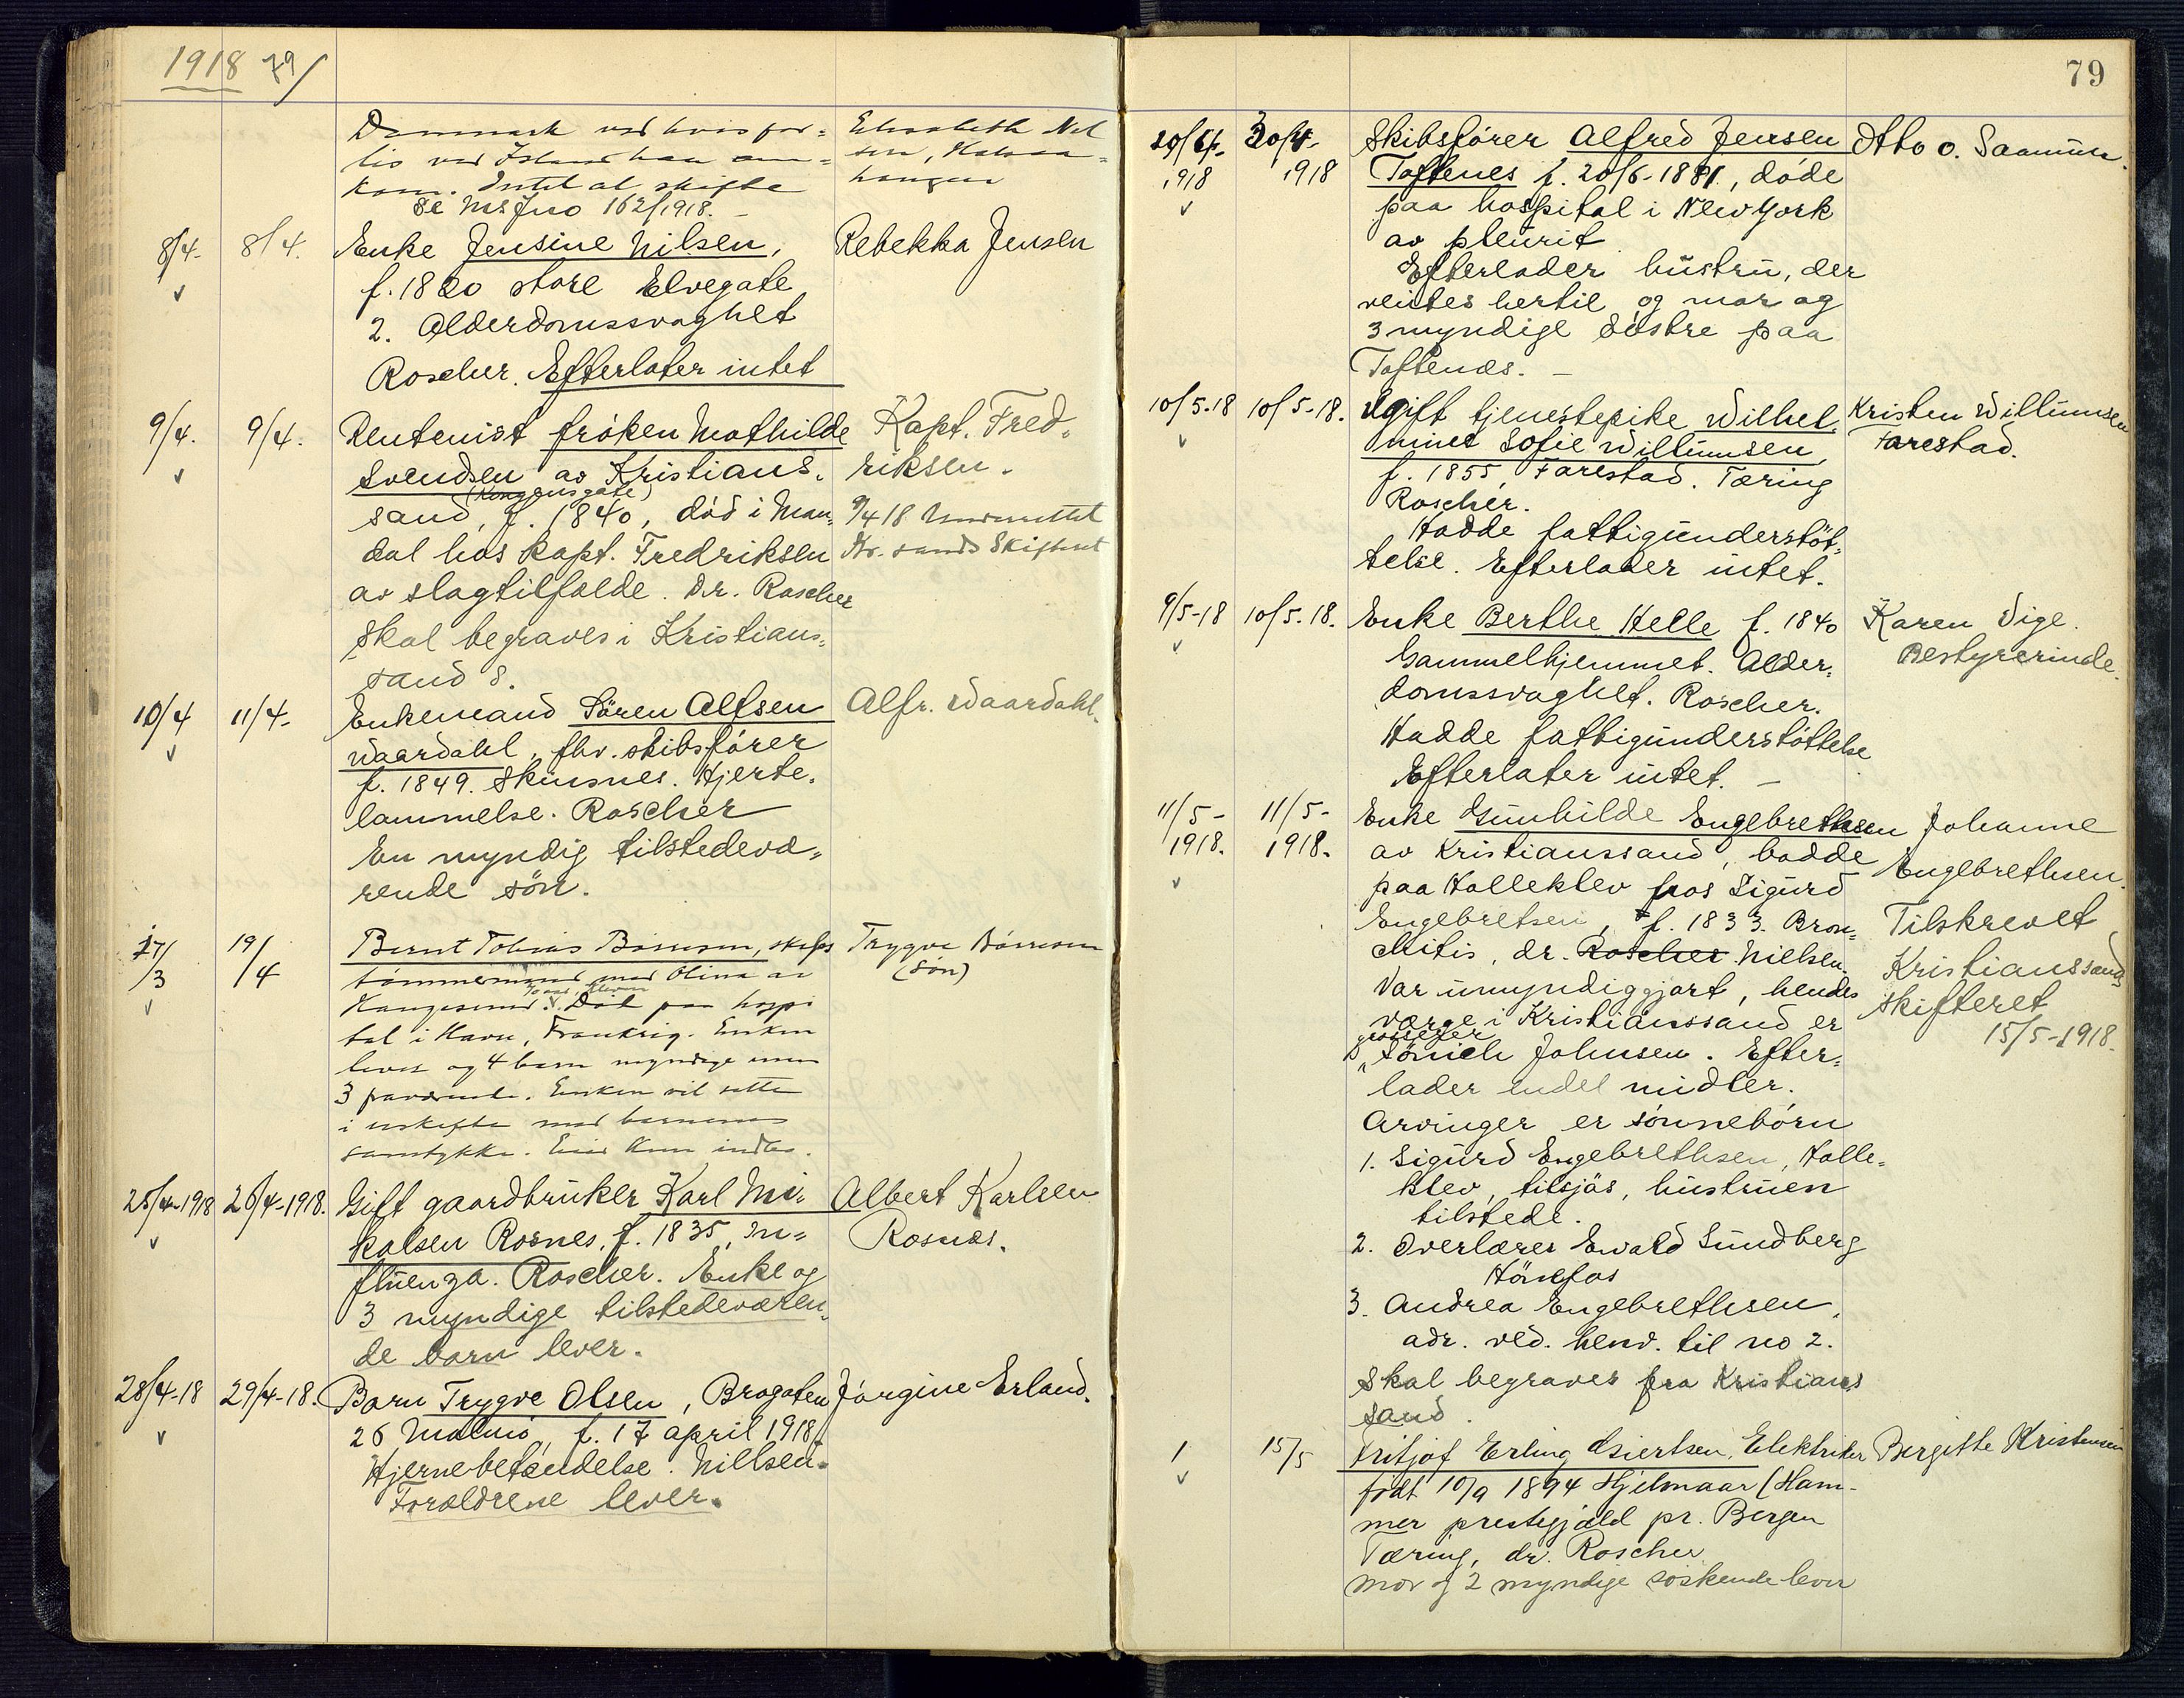 1918 79/
Danmark ved hvis for=
lis ved Island han om=
kom. Intet at skifte
Se
Elisabeth Nil
sen,
8/4- 8/4. Enke Jensine Nilsen, Rebekka Jensen
f. 1820 store Elvegate
2. Alderdomssvaghet
Roscher. Efterlater intet
9/4. 9/4. Rentenist fröken Mathilde Kapt. Fred-
Svendsen av Kristians- riksen.
(Kongensgate)
sand, f. 1840, död i Man- 9/4 18 Underrettet
dal hos Kapt. Fredriksen Kr. sands Skifteret
av slagtilfælde. Dr. Roscher
Skal begraves i Kristians-
sand S.
10/4 11/4- Enkemand Sören Alfsen Alfr. Waardahl.
Waardahl, fhv. skibsförer
f. 1849. Skinsnes. Hjerte-
lammelse. Roscher
En myndig tilstedevæ-
rende sön.
17/3 19/4 Bernt Tobias Börresen, skibs Trygve Börresen
tömmermand med Olina av (sön)
Död paa hospi
tal i Havre, Frankrig. Enken
lever og 4 barn myndige unn
3 fraværende. Enken vil sitte
i uskifte med barnenes
samtykke. Eier kun indbo.
25/4-1918 26/4-1918. Gift gaardbruker Karl Mi- Albert Karlsen
kalsen Rosnes, f. 1835, In= Rosnæs.
fluenza. Roscher. Enke og
3 myndige tilstedeværen-
de barn lever.
28/4-18 29/4-18. Barn Trygve Olsen, Brogaten Jörgine Erland.
26 Malmö, f. 17 april 1918,
Hjernebetændelse. Nilssen.
Forældrene lever.
79
29/4- 30/4- Skibsförer Alfred Jensen Otto O.
1918 1918 Toftenes f. 20/6-1881., döde
paa hospital i New York
av pleurit
Efterlader hustru, der
ventes hertil og mor og
3 myndige söstre paa
Toftenæs. –
10/5-18 10/5-18. Ugift tjenestepike Wilhel- Kristen Willumsen
mine Sofie Willumsen, Farestad.
f. 1855, Farestad. Tæring
Roscher.
Hadde fattigunderstöt-
telse. Efterlader intet.
9/5-18 10/5-18. Enke Berthe Helle f. 1840 Karen Vige.
Gammelhjemmet. Alder- Bestyrerinde.
domssvaghet. Roscher.
Hadde fattigunderstöttelse
Efterlater intet. –
11/5- 11/5- Enke Gunhilde Engebrethsen Johanne
1918. 1918. av Kristianssand, bodde Engebrethsen.
paa Halleklev hos Sigurd
Engebretsen, f. 1833. Bron- Tilskrevet
chitis, dr. Roscher Nielsen. Kristianssands
Var umyndiggjort, hendes skifteret
værge i Kristianssand er 15/5-1918.
grosserer
Tönich Johnsen. Efter-
lader endel midler.
Arvinger er sönnebörn
1. Sigurd Engebrethsen, Halle-
klev, tilsjös, hustruen
tilstede.
2. Overlærer Ewald Sundberg
Hönefos
3. Andrea Engebrethsen,
adr. ved. henv. til no 2.
Skal begraves fra Kristians
sand.
1 15/5 Fritjof Erling Elektriker Bergitte Kristensen
födt 10/9 1894 (Ham-
mer prestegjæld pr. Bergen
Tæring, dr. Roscher
mor og 2 myndige söskende lever